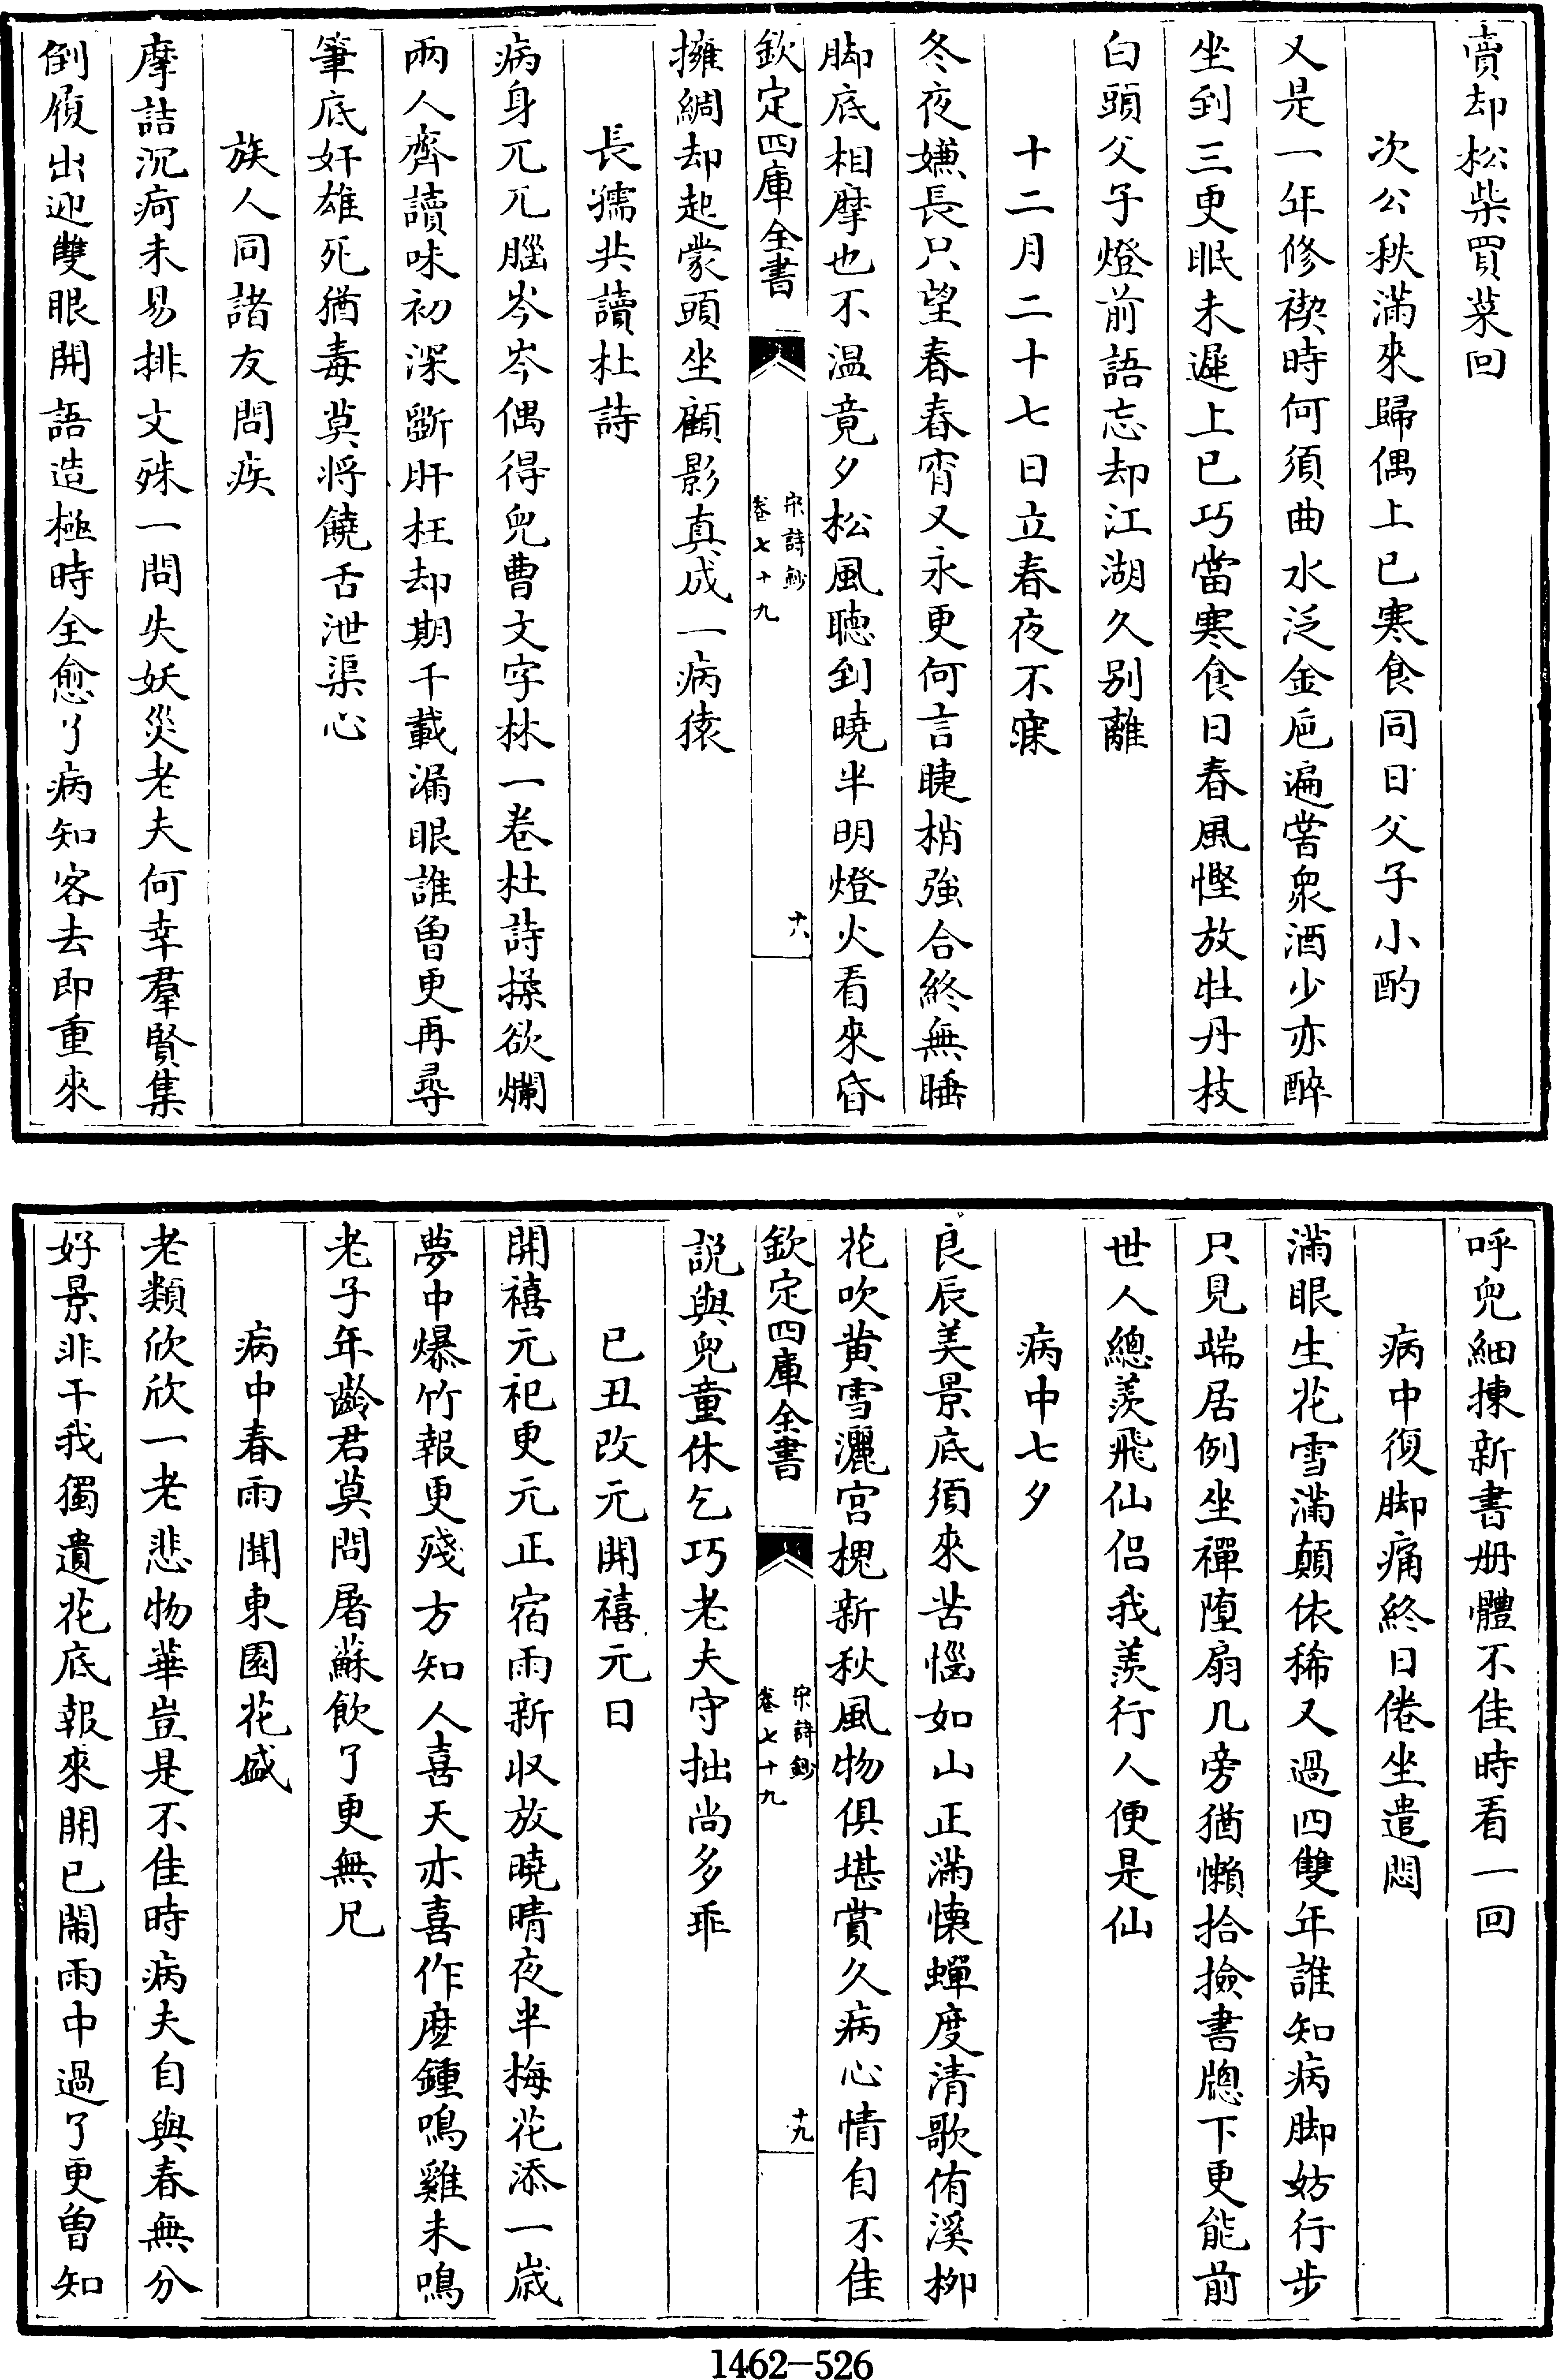 賣却松柴買菜回
次公秩滿來歸偶上已寒食同日父子小酌
又是一年修禊時何須曲水泛金巵遍嘗衆酒少亦醉
坐到三更眠未遲上已巧當寒食日春風慳放牡丹枝
白頭父子燈前語忘却江湖久别離
十二月二十七日立春夜不寐
冬夜嫌長只望春春宵又永更何言睫梢強合終無睡
脚底相摩也不温竟夕松風聽到曉半明燈火看來昏
欽定四庫全書
宋詩鈔
卷七十九
十八
擁綢却起蒙頭坐顧影真成一病猿
長孺共讀杜詩
病身兀兀腦岑岑偶得兒曹文字林一卷杜詩揉欲爛
兩人齊讀味初深斵肝枉却期千載漏眼誰曽更再尋
筆底奸雄死猶毒莫将饒舌泄渠心
族人同諸友問疾
摩詰沉疴未易排文殊一問失妖災老夫何幸羣賢集
倒屐出迎雙眼開語造極時全愈了病知客去即重來
呼兒細揀新書册體不佳時看一回
病中復脚痛終日倦坐遣悶
滿眼生花雪滿顛依稀又過四雙年誰知病脚妨行步
只見端居例坐禪墮扇几旁猶懶拾撿書牕下更能前
世人總羨飛仙侣我羨行人便是仙
病中七夕
良辰美景底須來苦惱如山正滿懐蟬度清歌侑溪柳
花吹黄雪灑宫槐新秋風物俱堪賞久病心情自不佳
欽定四庫全書
宋詩鈔
卷七十九
十九
説與兒童休乞巧老夫守拙尚多乖
已丑改元開禧元日
開禧元祀更元正宿雨新収放曉晴夜半梅花添一嵗
夢中爆竹報更殘方知人喜天亦喜作麽鍾鳴雞未鳴
老子年齡君莫問屠蘇飲了更無兄
病中春雨聞東園花盛
老類欣欣一老悲物華豈是不佳時病夫自與春無分
好景非干我獨遺花底報來開已閙雨中過了更曽知
1462-526